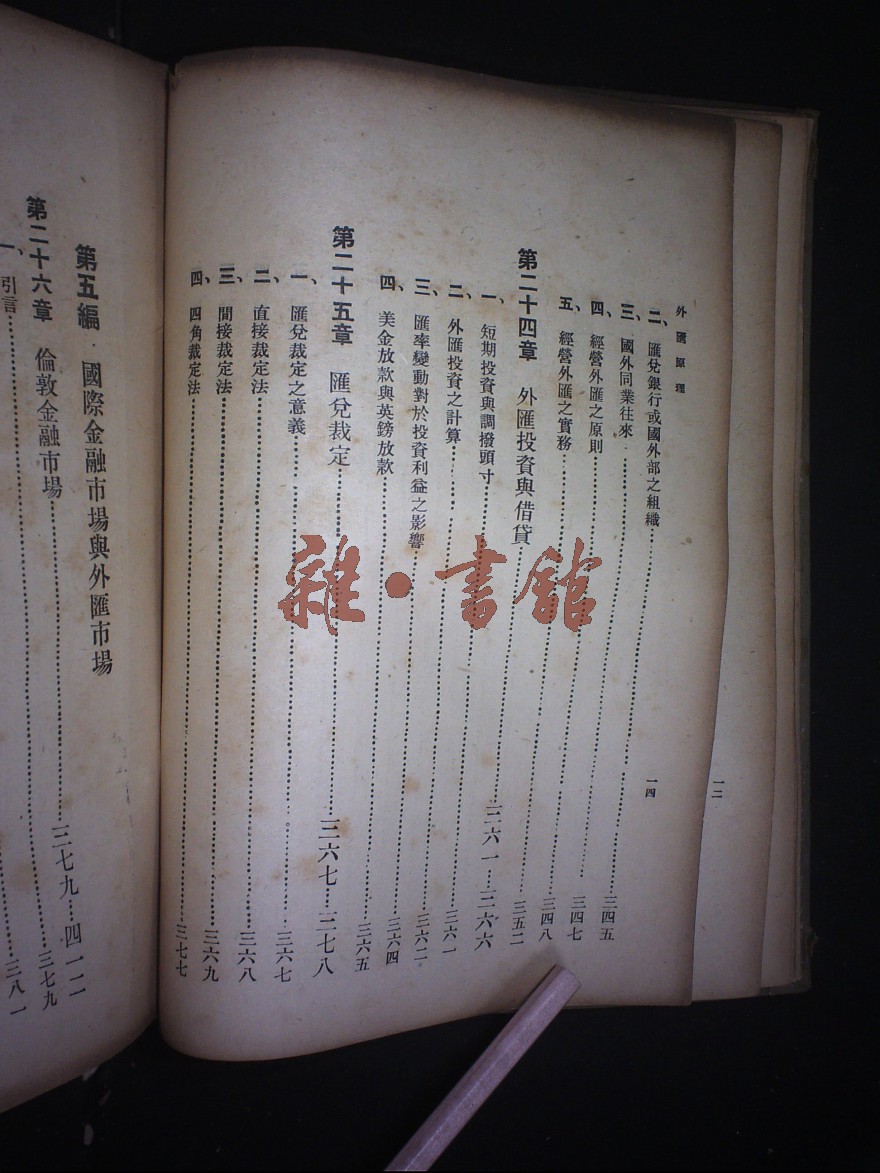 外匯原理
一四
二、匯兌銀行或國外部之組織……三四五
三、國外同業往來……三四七
四、經營外匯之原則……三四八
五、經營外匯之實務……三五二
第二十四章 外匯投資與借貸……三六一—三六六
一、短期投資與調撥頭寸……三六一
二、外匯投資之計算……三六二
三、匯率變動對於投資利益之影響……三六四
四、美金放款與英鎊放款……三六五
第二十五章 匯兌裁定……三六七—三七八
一、匯兌裁定之意義……三六七
二、直接裁定法……三六八
三、間接裁定法……三六九
四、四角裁定法……三七七
第五編 國際金融市場與外匯市場
第二十六章 倫敦金融市場……三七九—四一二
一、引言……三七九
三八一
一二
雜·書館